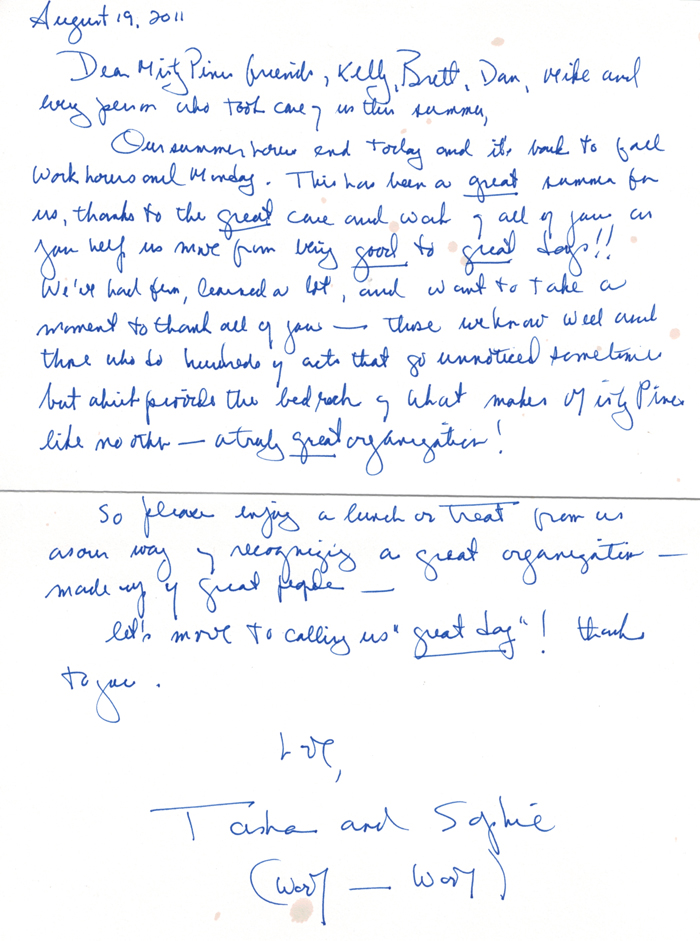 August 19, 2011
Dear Misty Pines friends, Kelly, Brett, Dan, Mike and
every person who took care of us this summer,
Our summer hours end today and it's back to fall
work hours on Monday. This has been a great summer for
us, thanks to the great care and work of all of you as
you help us move from being good to great dogs!!
We've had fun, learned a lot, and want to take a
moment to thank all of you — those we know well and
those who do hundreds of acts that go unnoticed sometimes
but which provide the bedrock of what makes Misty Pines
like no other — a truly great organization!
So please enjoy a lunch or treat from us
as our way of recognizing a great organization —
made up of great people —
let's move to calling us "great dogs"! thanks
to you.
Love,
Tasha and Sophie
(Woof — Woof)